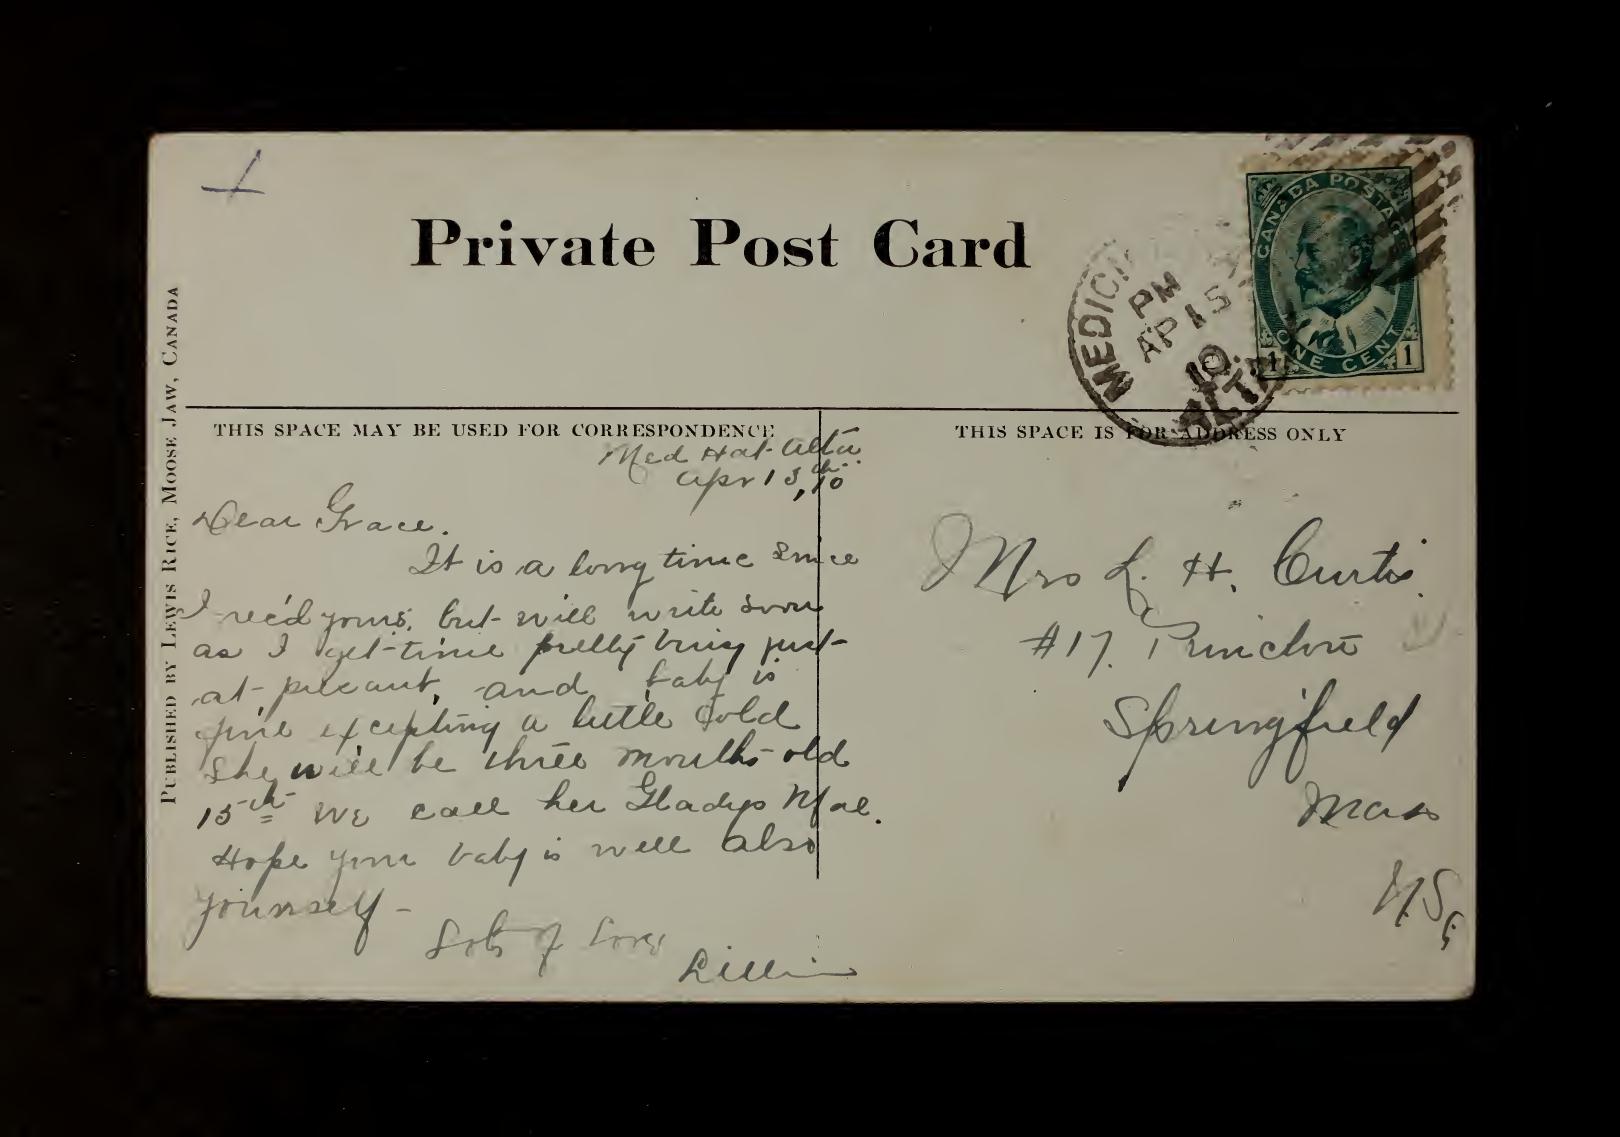 Private Post Card
CANADA POSTAGE
ONE CENT
1 1
MEDICI
PM
AP 15
10
ALTA
PUBLISHED BY LEWIS RICE, MOOSE JAW, CANADA
THIS SPACE MAY BE USED FOR CORRESPONDENCE
Med Hat Alta
Apr 13th, 10
Dear Grace.
It is a long time since
I rec'd yours, but will write soon
as I get time pretty busy just
at present, and baby is
fine excepting a little cold
She will be three months old
15th We call her Gladys Mae.
Hope your baby is well also
yourself -
Lots of Love
Lillian
THIS SPACE IS FOR ADDRESS ONLY
Mrs L. H. Curtis.
#17. Princton
Springfield
Mass